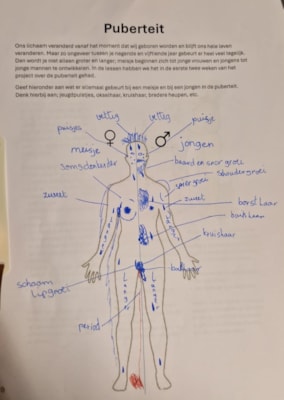 Puberteit
Ons lichaam verandert vanaf het moment dat wij geboren worden en blijft ons hele leven
veranderen. Maar zo ongeveer tussen je negende en vijftiende jaar gebeurt er heel veel tegelijk.
Dan wordt je niet alleen groter en langer, meisjes beginnen zich tot jonge vrouwen en jongens tot
jonge mannen te ontwikkelen. In de lessen hebben we het in de eerste twee weken van het
project over de puberteit gehad.
Geef hieronder aan wat er allemaal gebeurt bij een meisje en bij een jongen in de puberteit.
Denk hierbij aan; jeugdpuistjes, okselhaar, kruishaar, bredere heupen, etc.
vettig
vettig
puisjes
♀
♂
puisje
meisje
jongen
baard en snor groei
schoudergroei
zweet
zweet
borst haar
buik haar
kruishaar
schaam
lipgroei